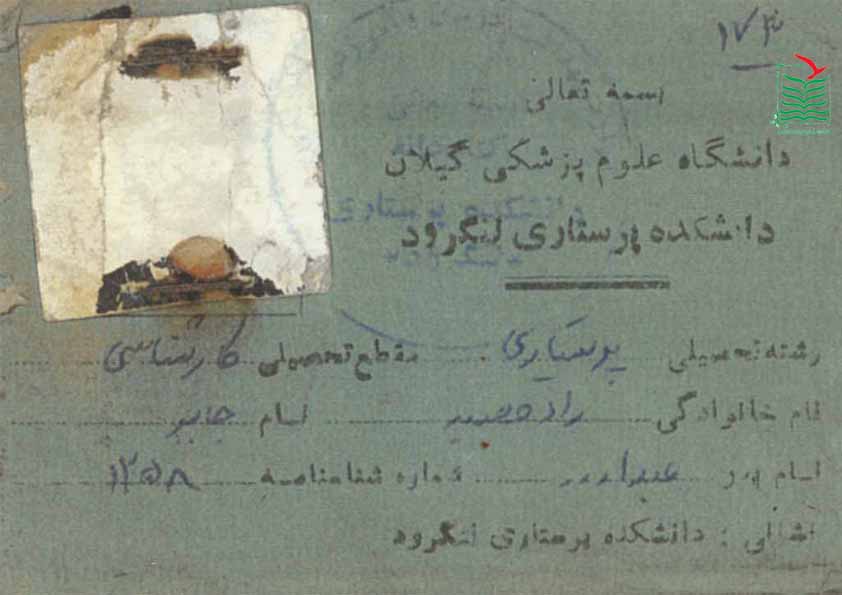 ۱۷۴
بسمه تعالی
دانشگاه علوم پزشکی گیلان
دانشکده پرستاری لنگرود
رشته تحصیلی پرستاری مقطع تحصیلی کارشناسی
نام خانوادگی نام جابر
نام پدر شماره شناسنامه ۱۲۵۸
نشانی : دانشکده پرستاری لنگرود